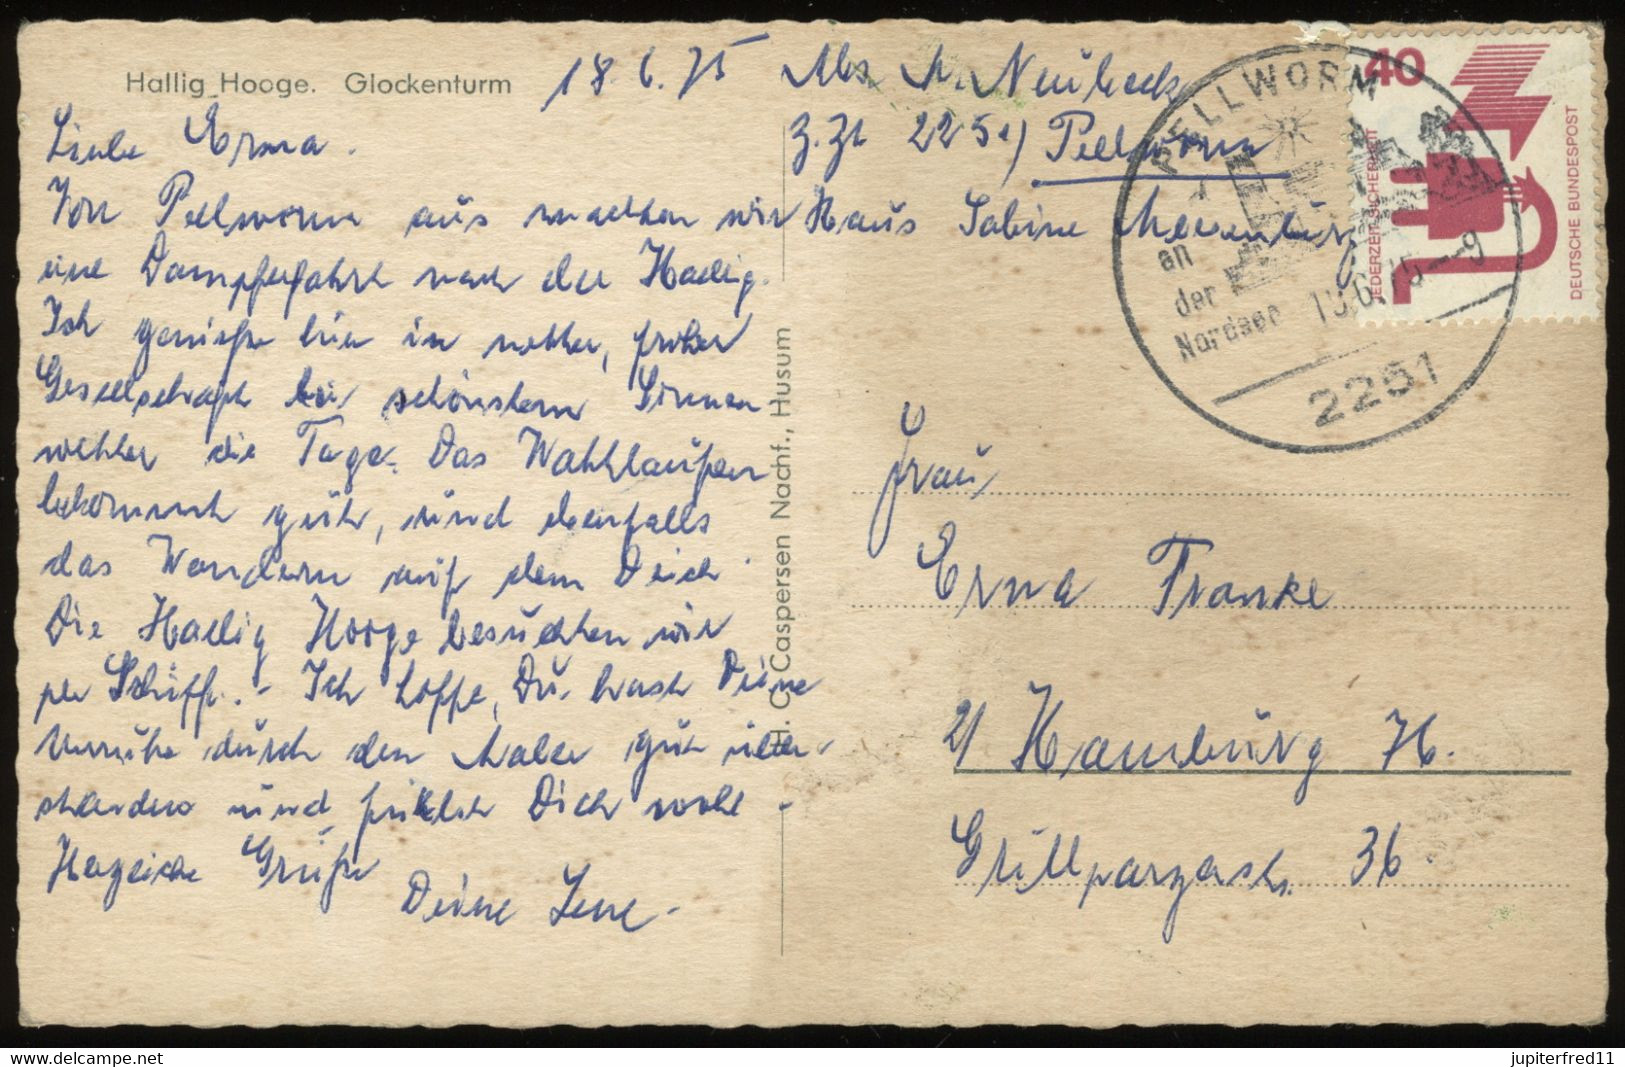 Hallig Hooge. Glockenturm
18.6.75
Liebe Erna.
Von Pellworm aus machten wir
eine Dampferfahrt nach der Hallig.
Ich genieße hier in netter, froher
Gesellschaft bei schönstem Sonnen-
wetter die Tage. Das Wattlaufen
bekommt gut, und ebenfalls
das Wandern auf dem Deich.
Die Hallig Hooge besuchten wir
per Schiff. - Ich hoffe, Du hast Deine
Unruhe durch den Maler gut über-
standen und fühlst Dich wohl -
Herzliche Grüße
Deine Lene -
H. C. Caspersen Nachf., Husum
Abs A. Neubeck
z.Zt 2251) Pellworm
Haus Sabine
40
JEDERZEIT SICHERHEIT
DEUTSCHE BUNDESPOST
PELLWORM
an
der
Nordsee
6.75--9
2251
Frau
Erna Franke
21 Hamburg 76.
Grillparzerstr. 36.
jupiterfred11